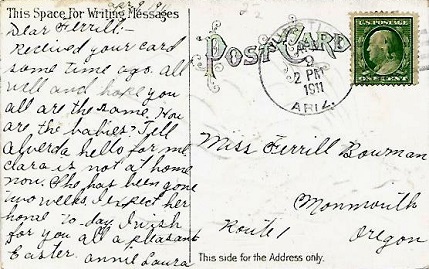 This Space For Writing Messages
Dear Ferrill:-
Received your card
some time ago. all
well and hope you
all are the same. How
are, the babies? Tell
Alverda hello for me.
Clara is not at home
now. She has been gone
two weeks I expect her
home to-day I wish
for you all a pleasant
Easter. Annie Laura
POST CARD
APR
2 PM
1911
ARIZ.
U.S. POSTAGE
ONE CENT
Miss Ferrill Bowman
Monmouth
Route 1
Oregon
This side for the Address only.